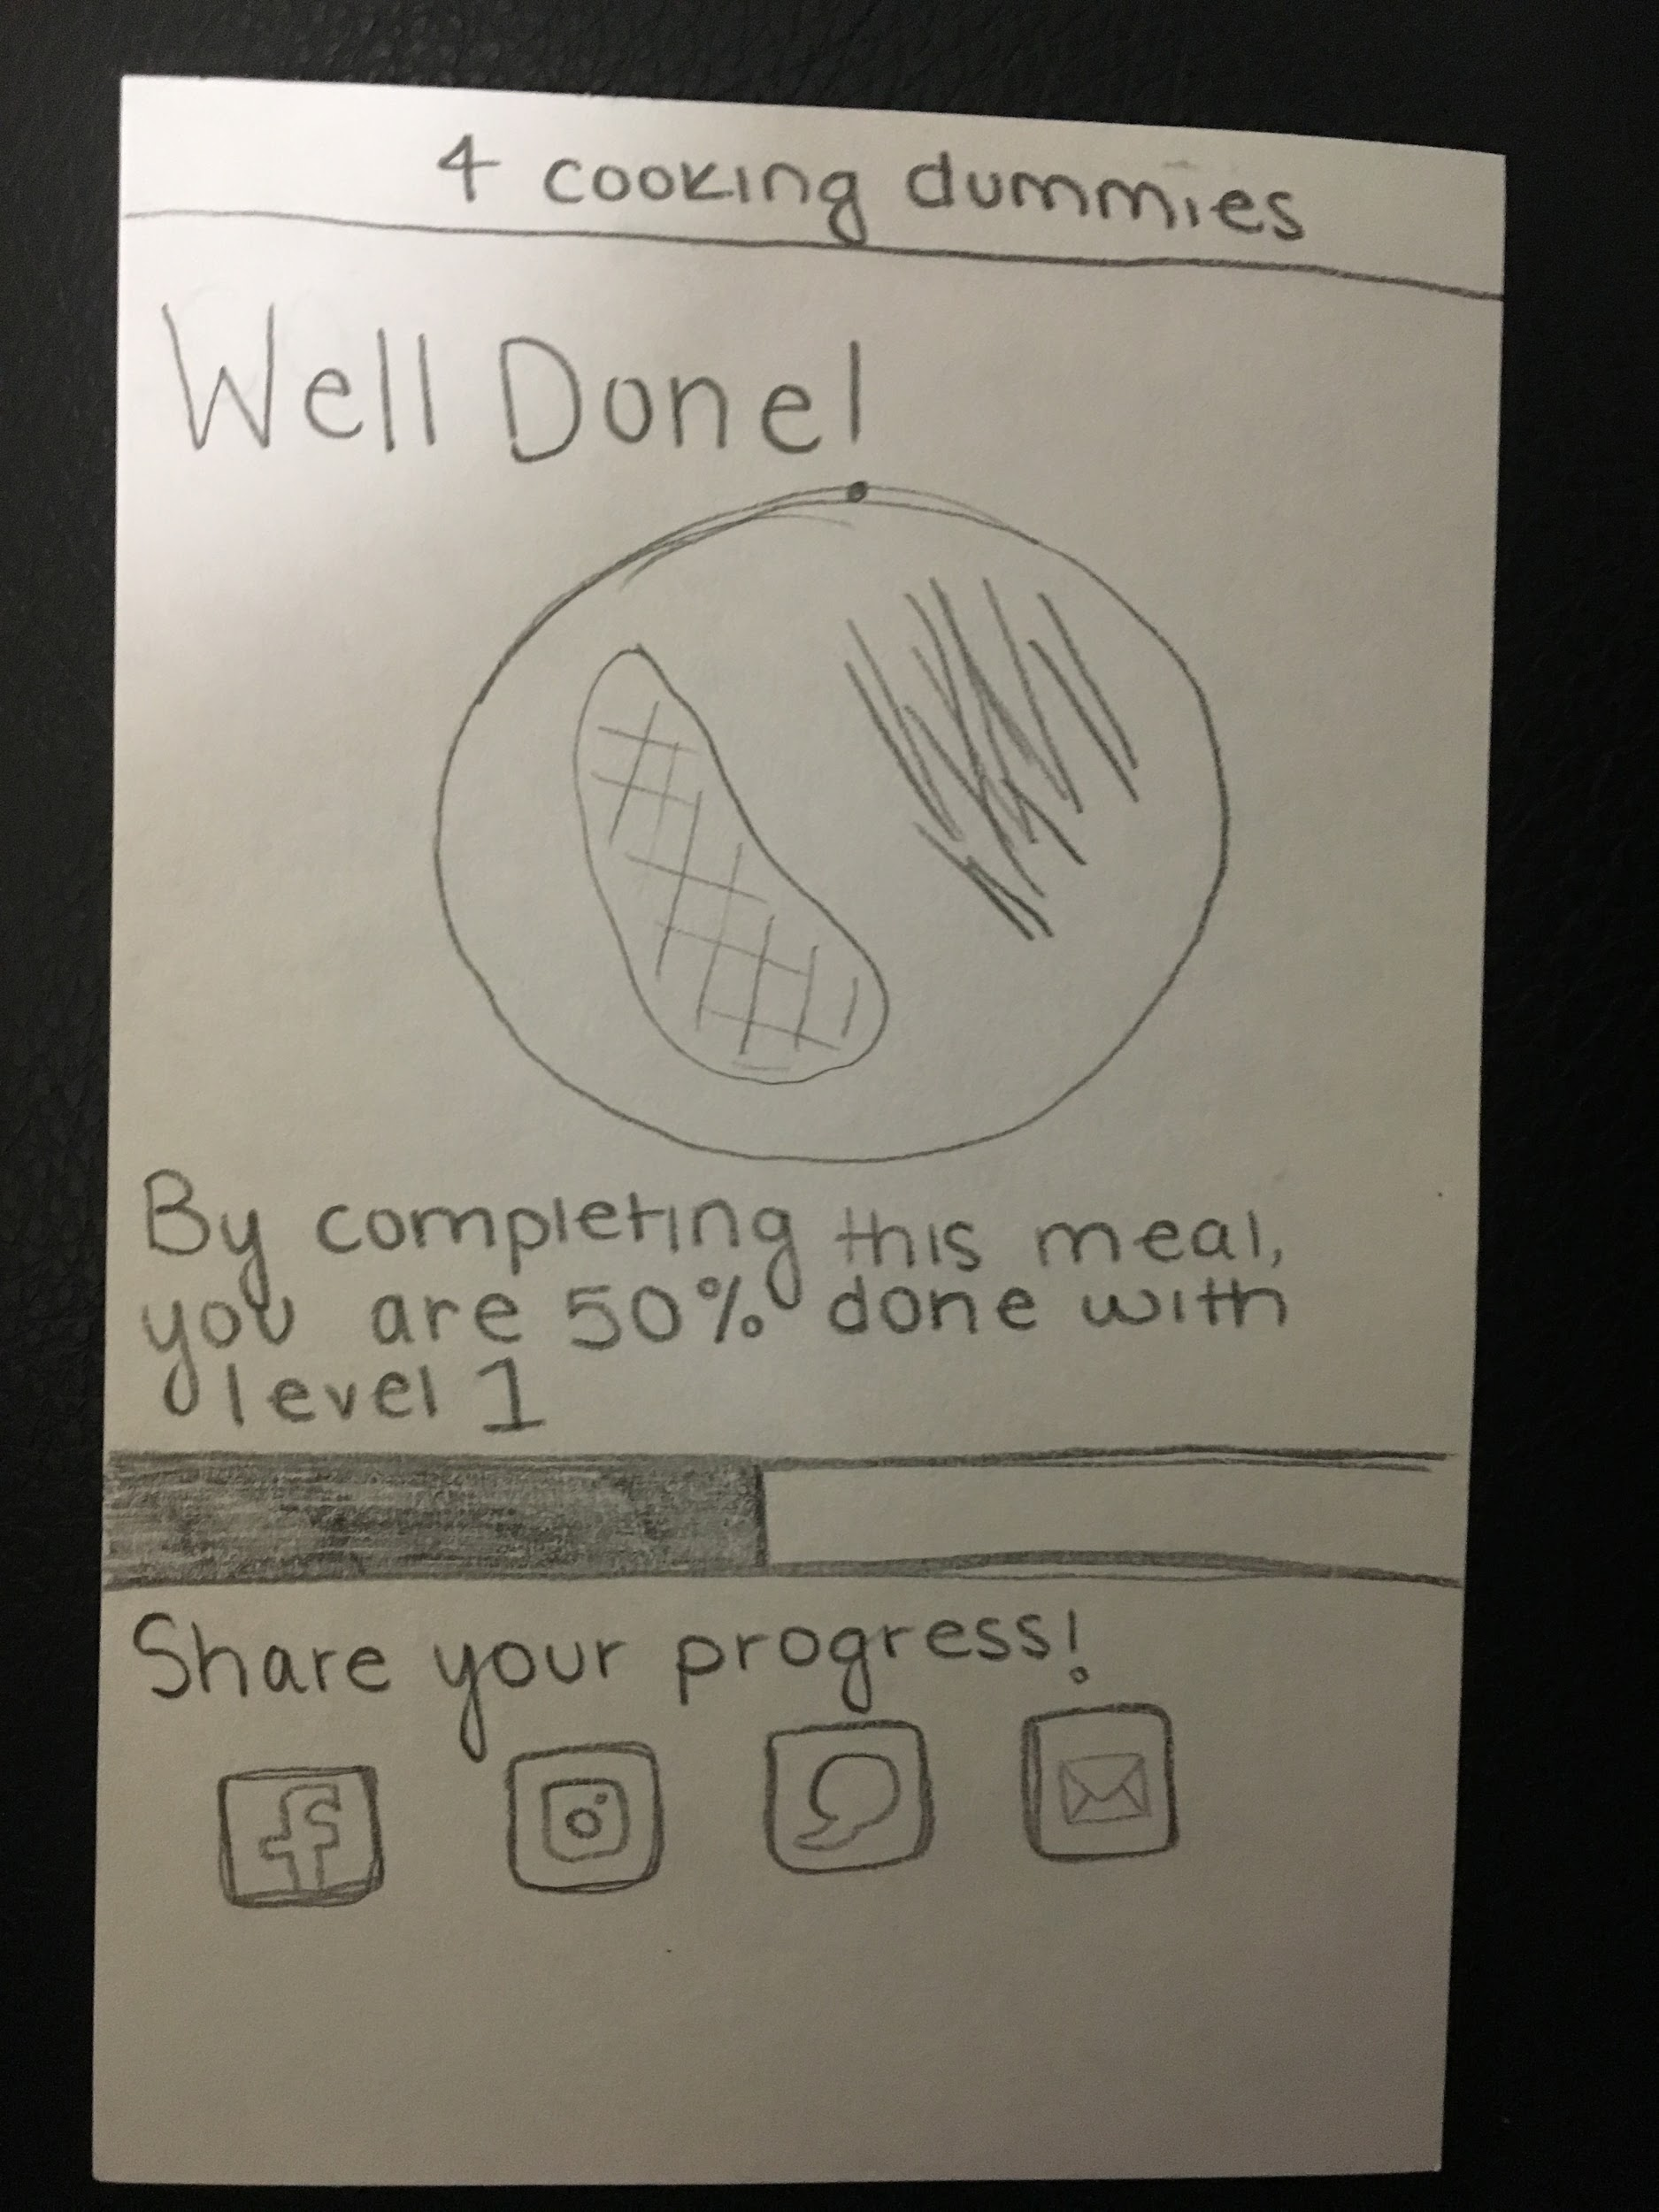 4 cooking dummies
Well Done!
By completing this meal,
you are 50% done with
level 1
Share your progress!
f